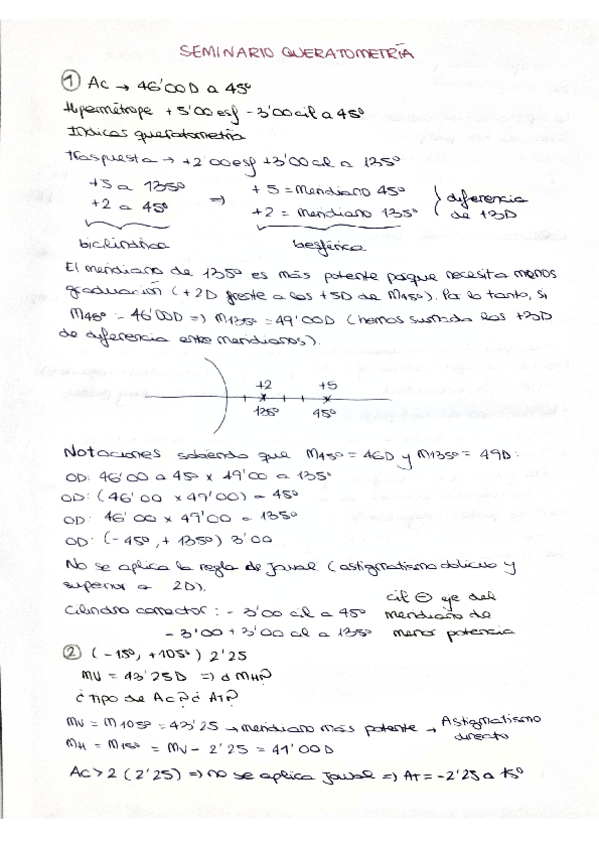 SEMINARIO QUERATOMETRÍA
① Ac → 46'00 D a 45º
Hipermétrope +5'00 esf -3'00 cil a 45º
Indicas queratometría
traspuesta → +2'00 esf +3'00 cil a 135º
+5 a 135º ⇒ +5 = meridiano 45º } diferencia
+2 a 45º +2 = meridiano 135º de +3D
bicilíndrica besférica
El meridiano de 135º es más potente porque necesita menos
graduación (+2D frente a los +5D de M45º). Por lo tanto, si
M45º = 46'00D => M135º = 49'00D (hemos sumado las +3D
de diferencia entre meridianos).
+2 +5
135º 45º
Notaciones sabiendo que M45º = 46D y M135º = 49D:
OD: 46'00 a 45º x 49'00 a 135º
OD: (46'00 x 49'00) a 45º
OD: 46'00 x 49'00 a 135º
OD: (-45º, +135º) 3'00
No se aplica la regla de Javal (astigmatismo oblicuo y
superior a 2D).
Cilindro corrector: -3'00 cil a 45º cil ⊖ eje del
-3'00 +3'00 cil a 135º meridiano de
menor potencia
② (-15º, +105º) 2'25
MV = 43'25D => ¿MH?
¿Tipo de Ac? ¿AT?
MV = M105º = 43'25 → meridiano más potente → Astigmatismo
directo
MH = M15º = MV - 2'25 = 41'00D
Ac > 2 (2'25) => no se aplica Javal => AT = -2'25 a 15º